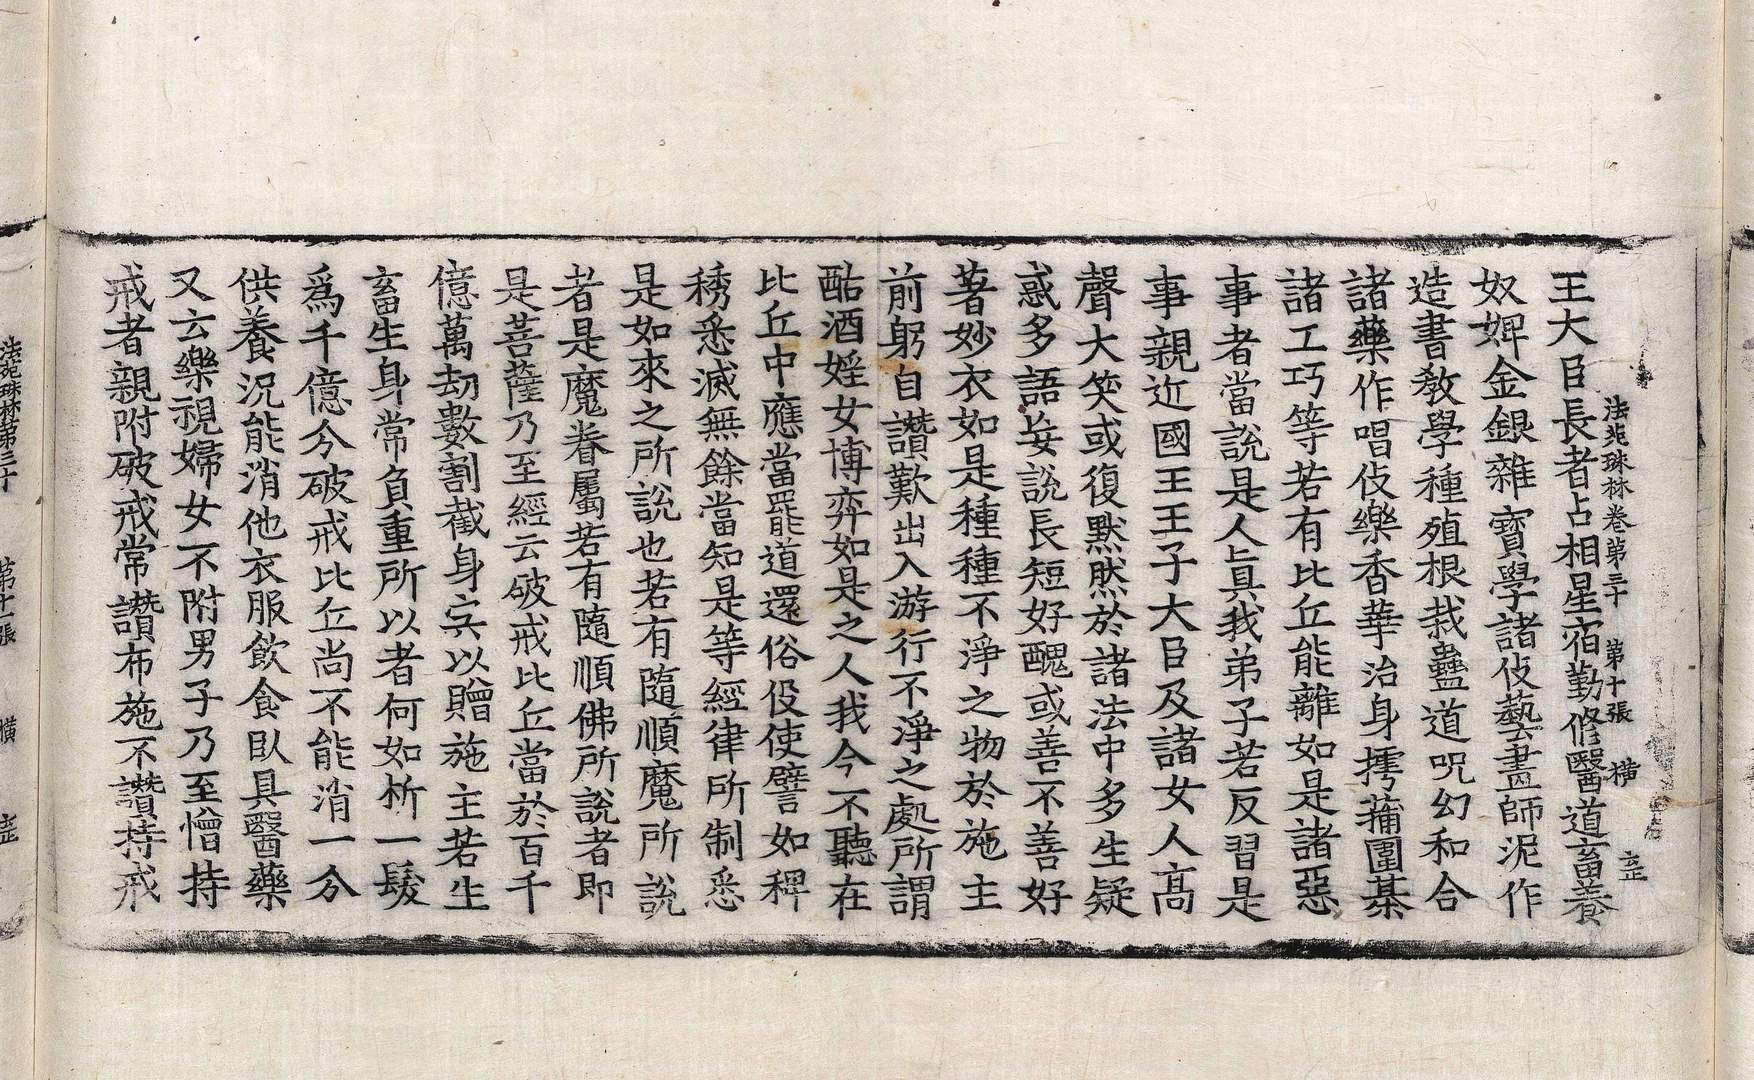 法苑珠林卷第三十 第十張 橫 㱏
王大臣長者占相星宿勤修醫道畜養
奴婢金銀雜寶學諸伎藝畫師泥作
造書教學種殖根栽蠱道呪幻和合
諸藥作唱伎樂香華治身摴蒱圍棊
諸工巧等若有比丘能離如是諸惡
事者當說是人真我弟子若反習是
事親近國王王子大臣及諸女人高
聲大笑或復默然於諸法中多生疑
惑多語妄說長短好醜或善不善好
著妙衣如是種種不淨之物於施主
前躬自讚歎出入游行不淨之處所謂
酤酒婬女博弈如是之人我今不聽在
比丘中應當罷道還俗役使譬如稗
稊悉滅無餘當知是等經律所制悉
是如來之所說也若有隨順魔所說
者是魔眷屬若有隨順佛所說者即
是菩薩乃至經云破戒比丘當於百千
億萬劫數割截身宍以贈施主若生
畜生身常負重所以者何如析一髮
為千億分破戒比丘尚不能消一分
供養況能消他衣服飲食臥具醫藥
又云樂視婦女不附男子乃至憎持
戒者親附破戒常讚布施不讚持戒
法苑珠林第三十 第十一張 橫